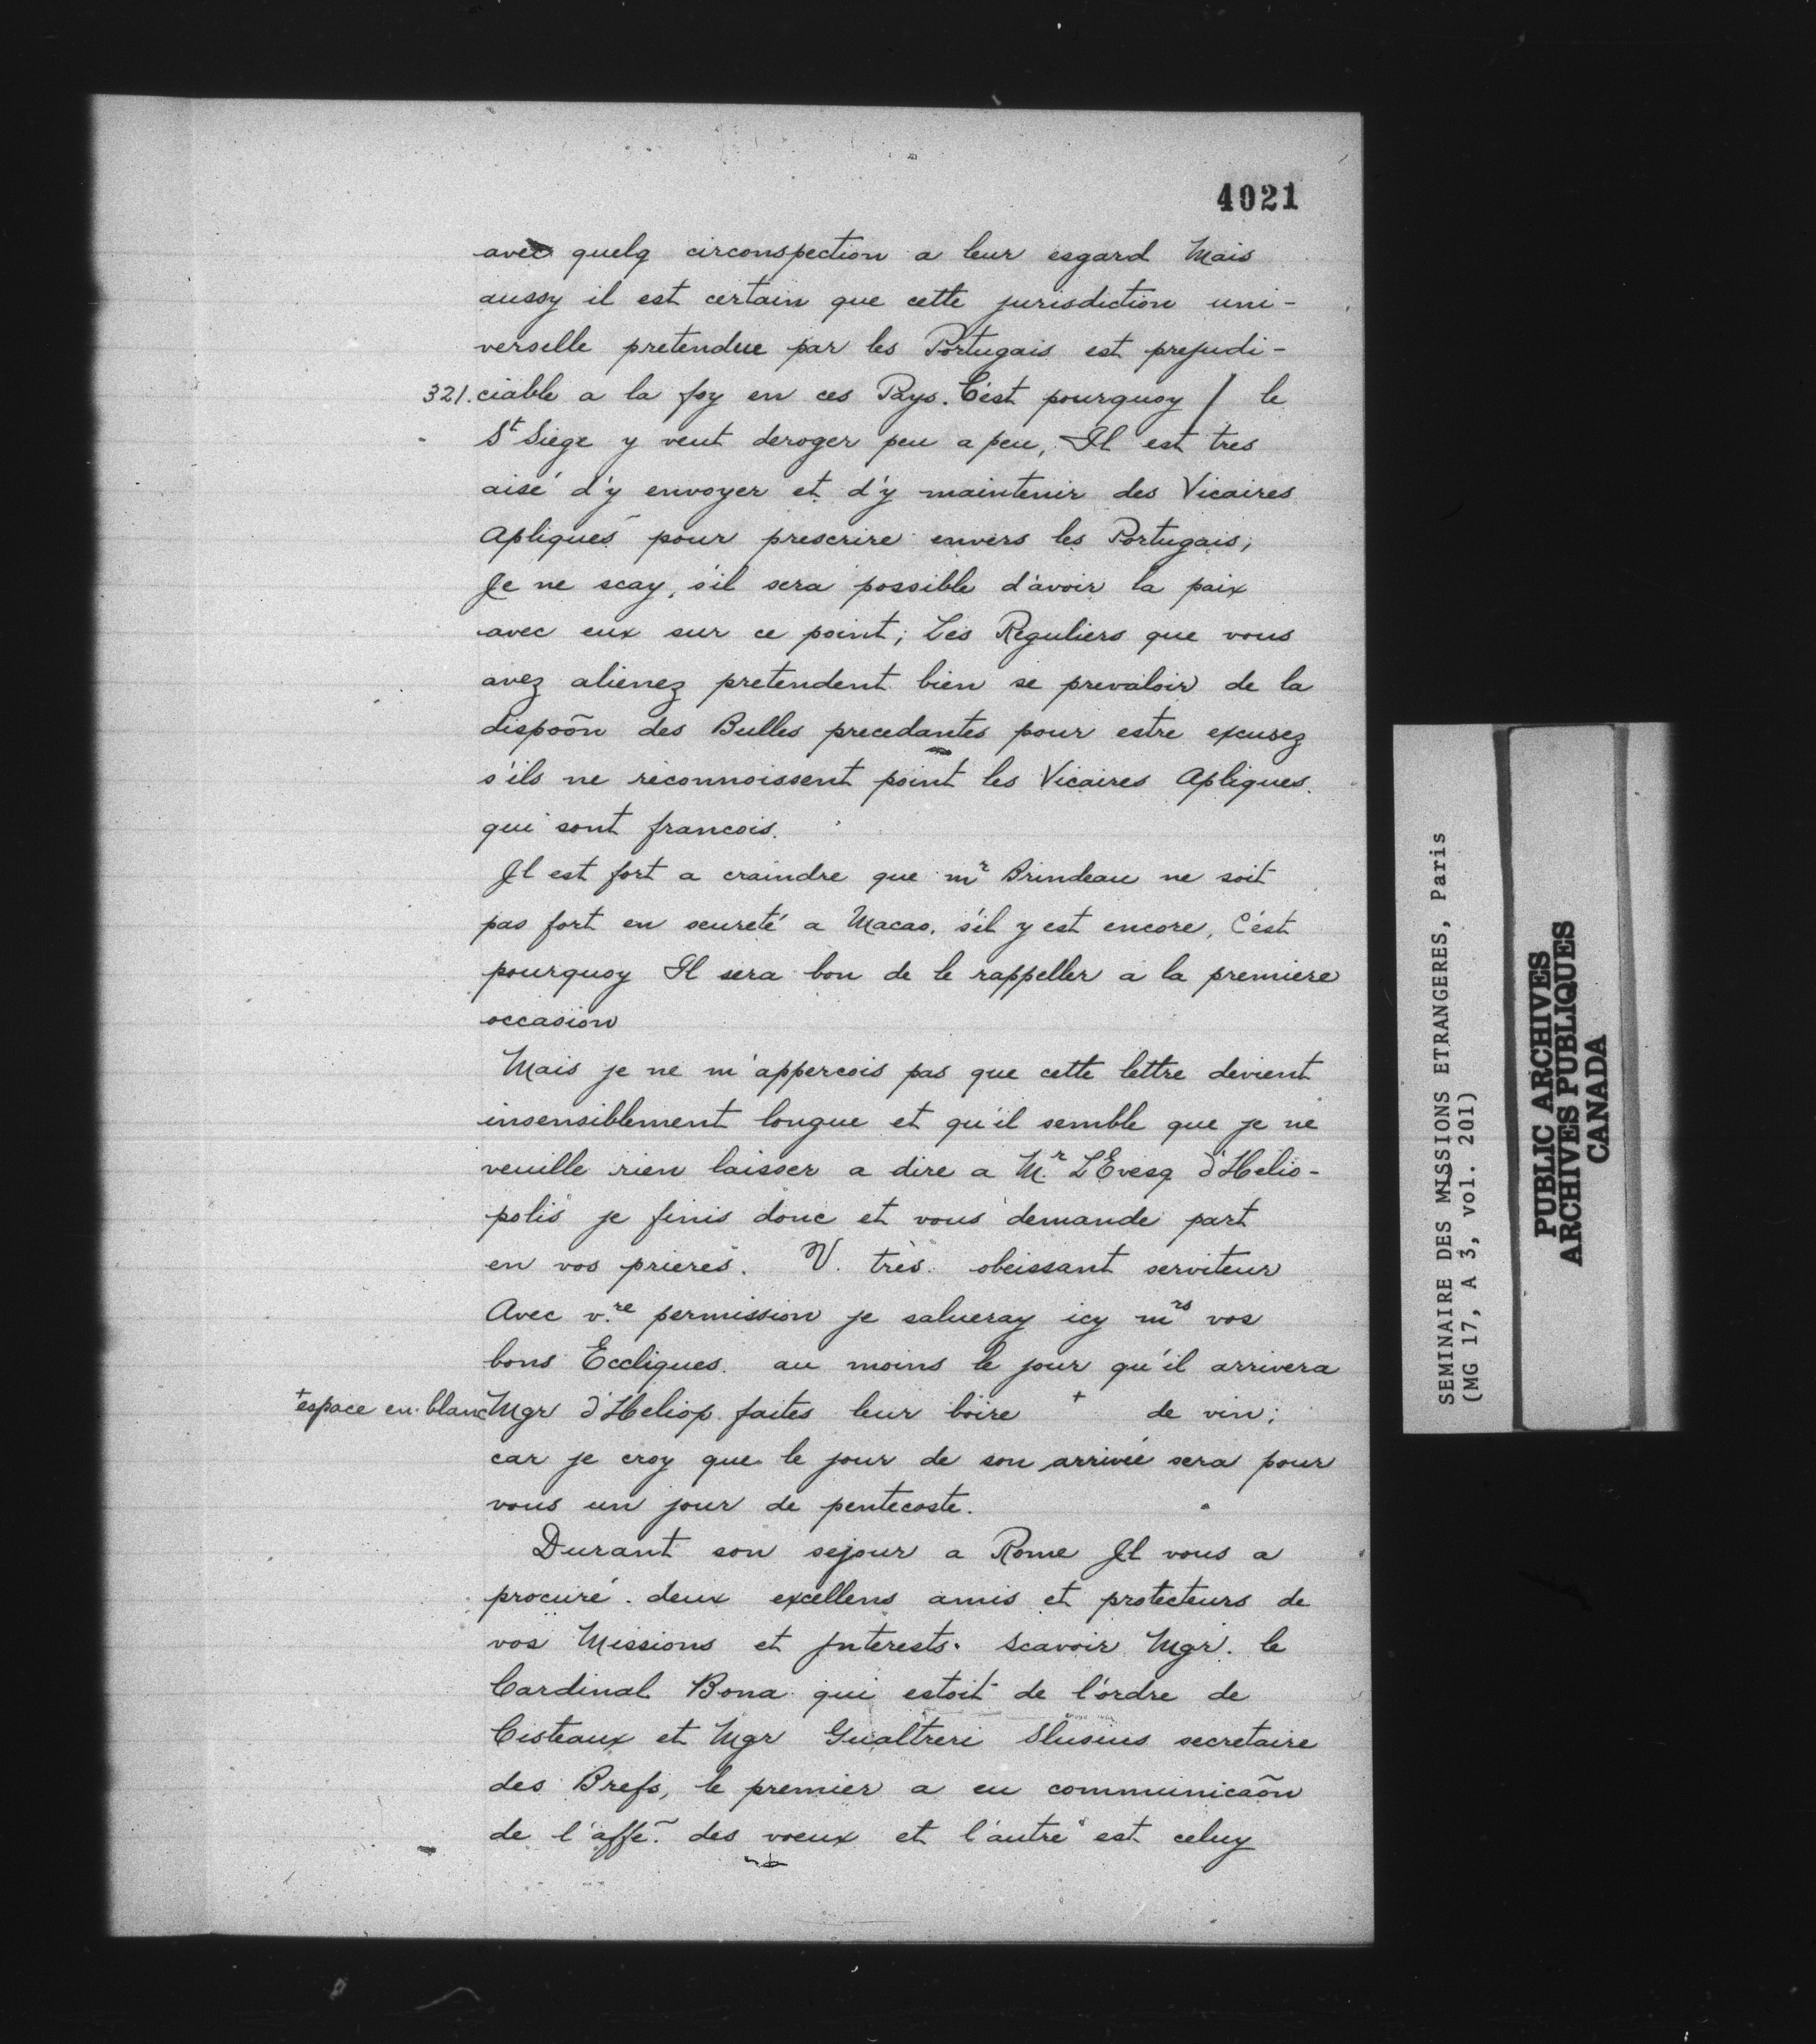 4021
avec quelq circonspection a leur esgard Mais
aussy il est certain que cette jurisdiction uni-
verselle pretendue par les Portugais est prejudi-
321. ciable a la foy en ces Pays. C'est pourquoy / le
St Siege y veut deroger peu a peu, Il est tres
aisé d'y envoyer et d'y maintenir des Vicaires
Apliques pour prescrire envers les Portugais;
Je ne scay, s'il sera possible d'avoir la paix
avec eux sur ce point; Les Reguliers que vous
avez alienez pretendent bien se prevaloir de la
dispoõn des Bulles precedantes pour estre excusez
s'ils ne reconnoissent point les Vicaires Apliques.
qui sont francois.
Il est fort a craindre que mr Brindeau ne soit
pas fort en seureté a Macao, s'il y est encore, C'est
pourquoy Il sera bon de le rappeller a la premiere
occasion
Mais je ne m'appercois pas que cette lettre devient
insensiblement longue et qu'il semble que je ne
veuille rien laisser a dire a Mr. L'Evesq d'Helio-
polis je finis donc et vous demande part
en vos prieres. V. très. obeissant serviteur
Avec v.re permission je salueray icy mrs vos
bons Eccliques. au moins le jour qu'il arrivera
+espace en blanc Mgr d'Heliop. faites leur boire + de vin;
car je croy que le jour de son arrivée sera pour
vous un jour de pentecoste.
Durant son sejour a Rome Il vous a
procuré deux excellens amis et protecteurs de
vos Missions et Interests. scavoir Mgr. le
Cardinal Bona qui estoit de l'ordre de
Cisteaux et Mgr Gualtreri Slusius secretaire
des Brefs, le premier a eu communicaõn
de l'affẽ. des voeux et l'autre est celuy
SEMINAIRE DES MISSIONS ETRANGERES, Paris
(MG 17, A 3, vol. 201)
PUBLIC ARCHIVES
ARCHIVES PUBLIQUES
CANADA